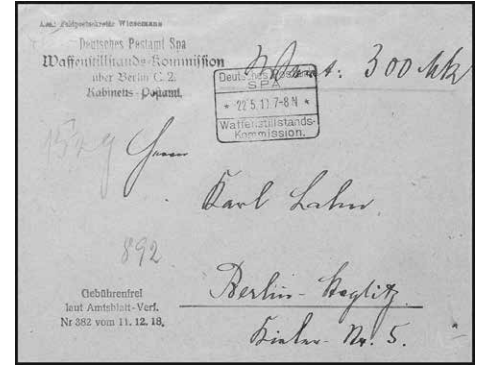 Absf Feldpostsekretär Wiesemann
Deutsches Postamt Spa
Waffenstillstands-Kommission
über Berlin C. 2.
Kabinetts-Postamt.
Wert: 300 Mk
Deutsches Postamt
SPA
* 22 5.19 7-8 N *
Waffenstillstands-
Kommission.
Herrn
Karl Lahn.
892
Berlin-Steglitz
Gebührenfrei
laut Amtsblatt-Verf.
Nr 382 vom 11. 12. 18.
Kieler- Nr. 5.